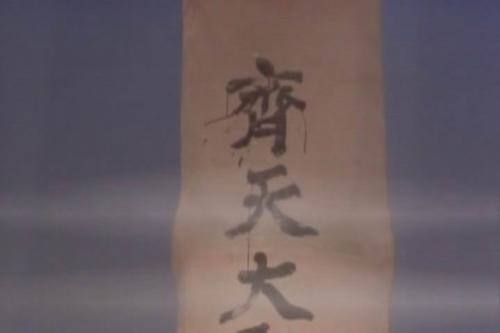 齊天大